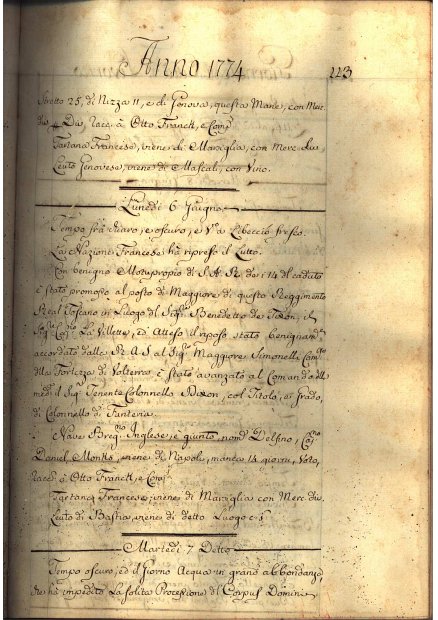 Anno 1774 223
Stretto 25, di Nizza 11, e di Genova, questa Mane, con Merc
die Da, Race: à Otto Franck, e Comp:
Tartana Francese, viene di Marsiglia, con Merc: die
Leuto Genovese, viene di Mascali, con Vino.
Lunedì 6 Giugno
Tempo frà chiaro, e oscuro, e V:to a Libeccio fresco.
La Nazione Francese hà ripreso il Lutto.
Con benigno Motuproprio di S. A. R. de i 14 del caduto
è stato promosso al posto di Maggiore di questo Reggimento
Real Toscano in Luogo del Sig:re Benedetto de
Sig:re La Villette, ed Atteso il riposo stato benignam:te
accordato dalla R. A. S al Sig:re Maggiore Simonelli
della Fortezza di Volterra è stato avanzato al Comando della
med:a il Sig:re Tenente Colonnello Dixon, col Titolo, e grado,
di Colonnello di Fanteria.
Nave Inglese, è giunta, nom:ta Delfino, Cap:no
Daniel Monks, viene di Napoli, manca 14 giorni, Vota,
Race: à Otto Franck, e Comp:
Tartana Francese, viene di Marsiglia con Merc: die
Leuto di Bastia, viene di detto Luogo
Martedì 7 Detto
Tempo oscuro, ed il Giorno Acqua in grand' abbondanza,
che hà impedito la solita Processione del Corpus Domini